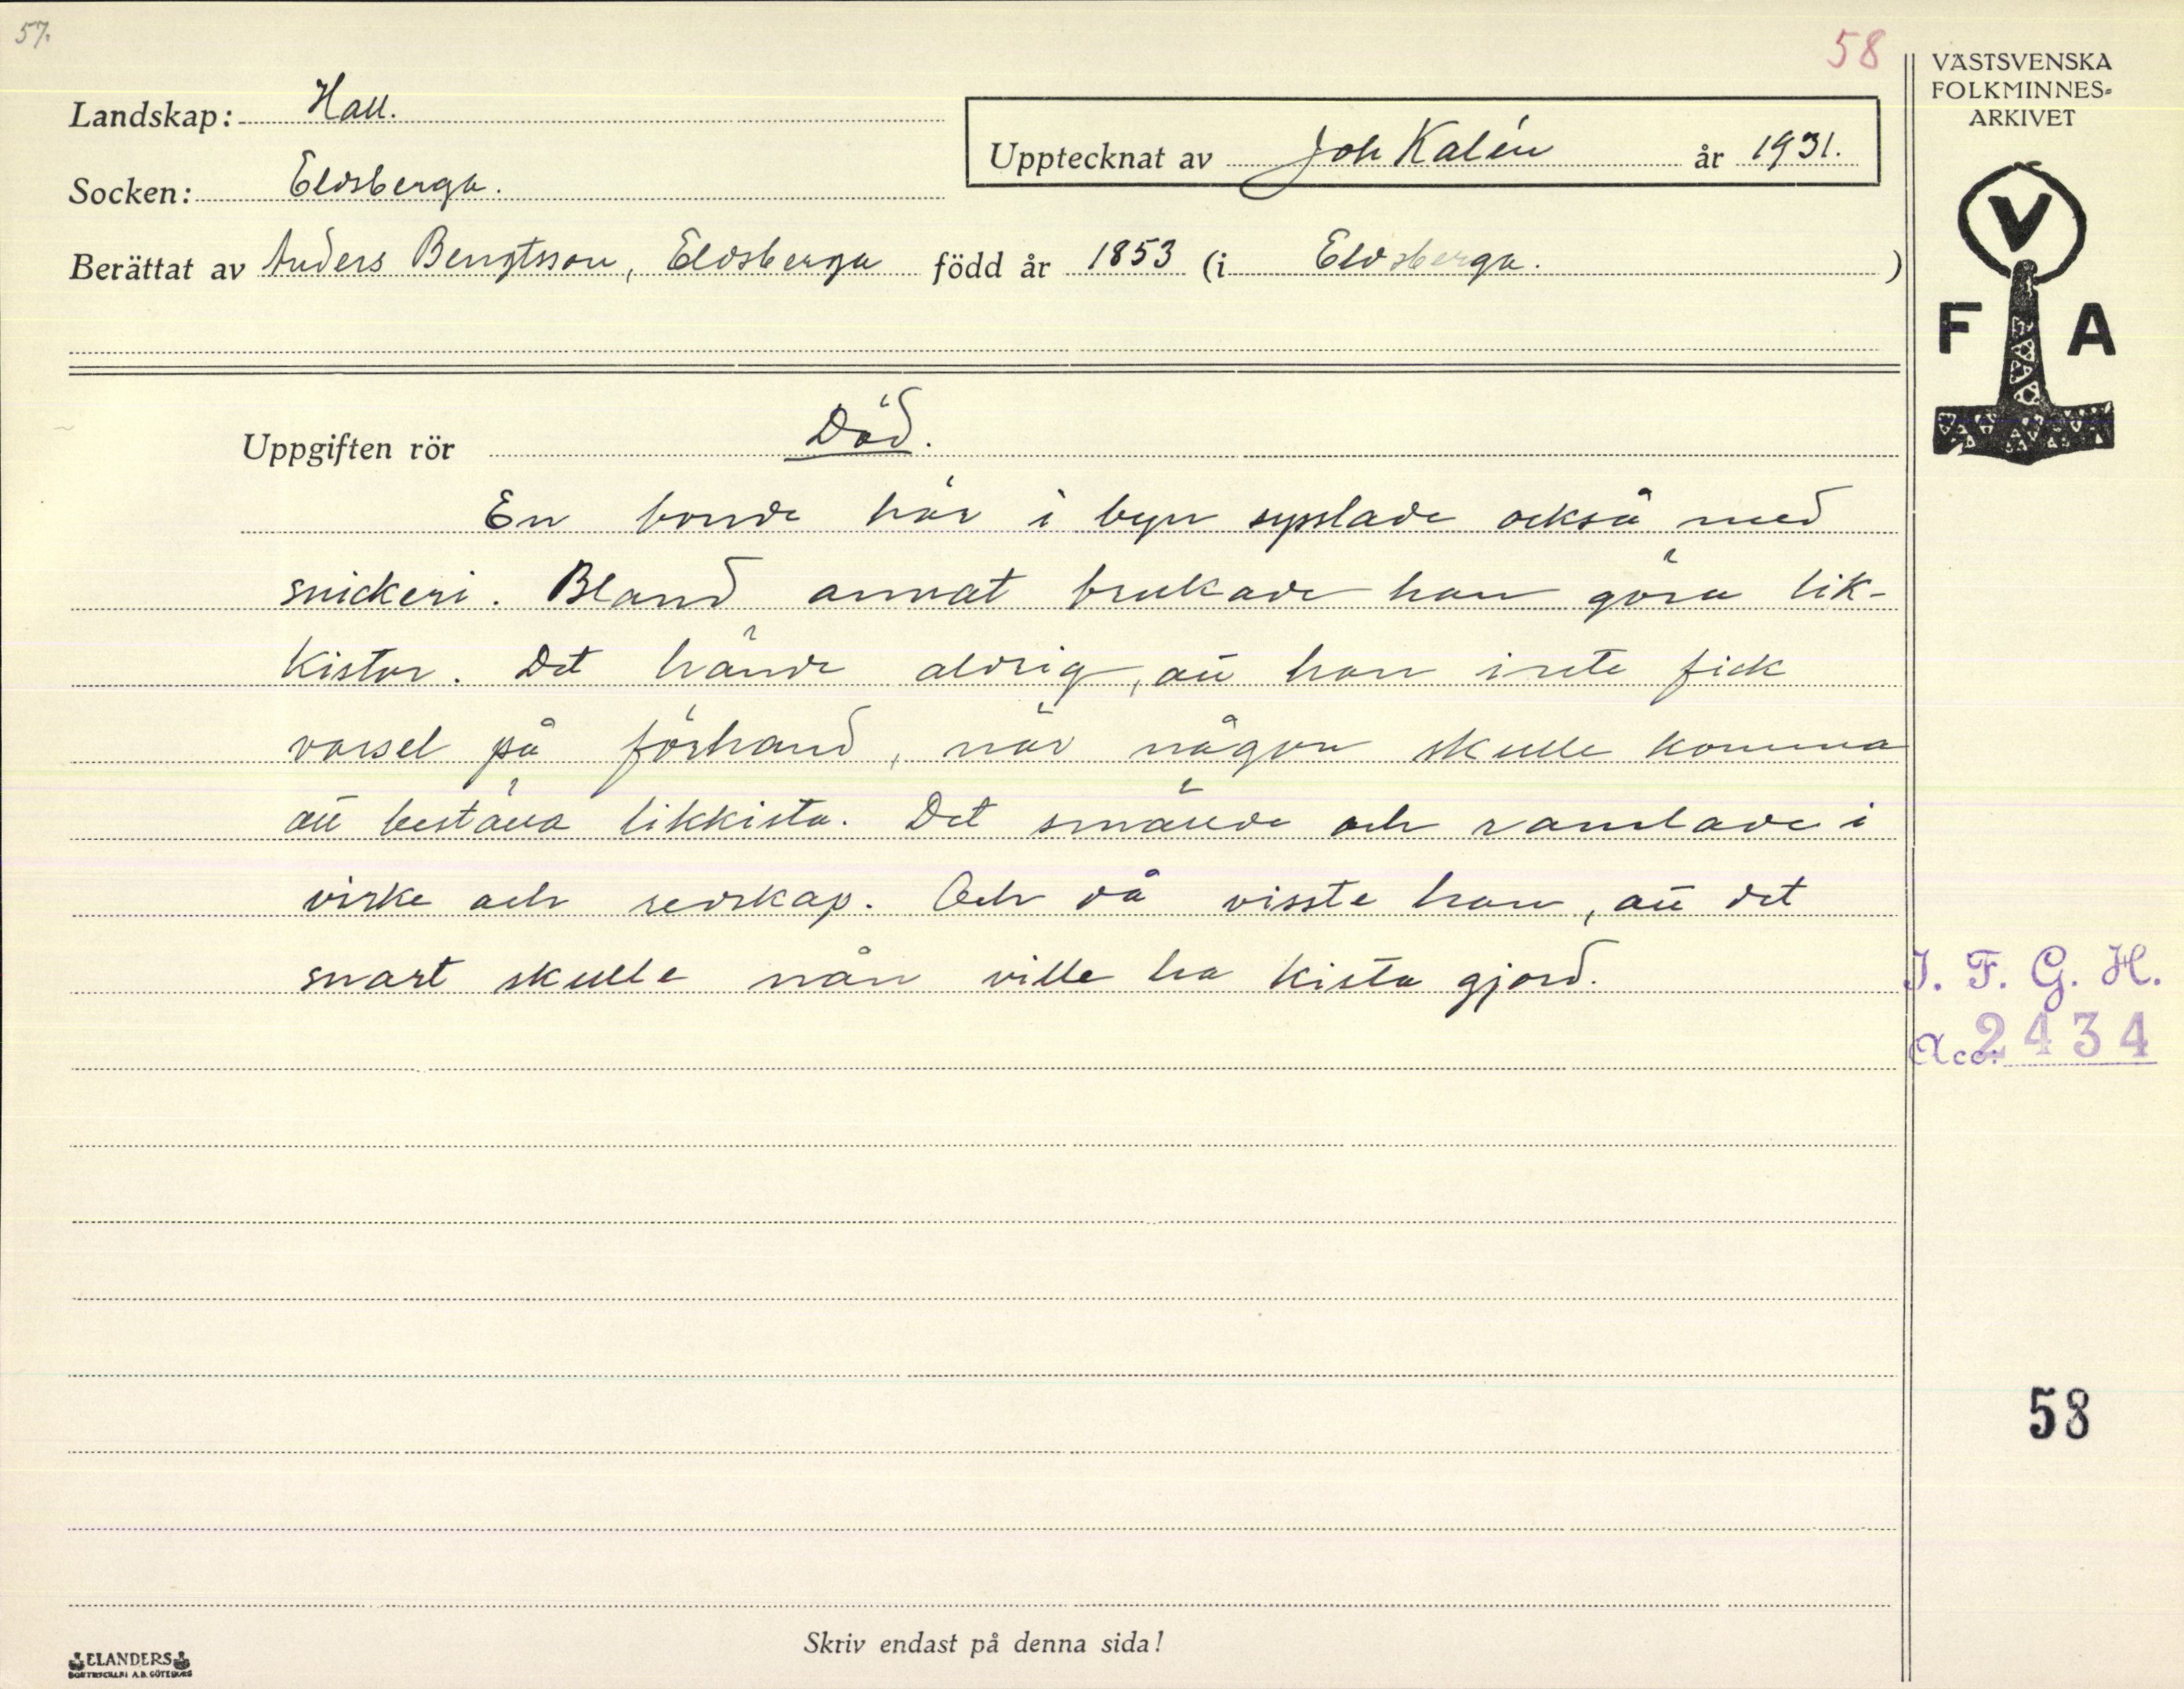 57.
58
VÄSTSVENSKA
FOLKMINNES-
ARKIVET
Landskap: Hall.
Upptecknat av Joh Kalén år 1931.
Socken: Eldsberga.
Berättat av Anders Bengtsson, Eldsberga född år 1853 (i Eldsberga. )
V
F A
Uppgiften rör Död.
En bonde här i byn sysslade också med
snickeri. Bland annat brukade han göra lik-
kistor. Det hände aldrig, att han inte fick
varsel på förhand, när någon skulle komma
att beställa likkista. Det smällde och ramlade i
virke och redskap. Och då visste han, att det
snart skulle nån ville ha kista gjord.
I. F. G. H.
Acc. 2434
58
Skriv endast på denna sida!
ELANDERS
BOKTRYCKERI A.B. GÖTEBORG